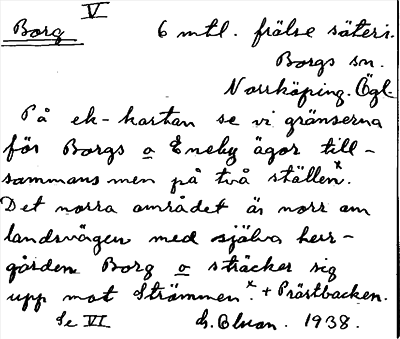 V
Borg 6 mtl. frälse säteri.
Borgs sn.
Norrköping. Ögl.
På ek-kartan se vi gränserna
för Borgs o Eneby ägor till-
sammans men på två ställen x.
Det norra området är norr om
landsvägen med själva herr-
gården Borg o sträcker sig
upp mot Strömmen. x + Prästbacken.
Se VI 1938.